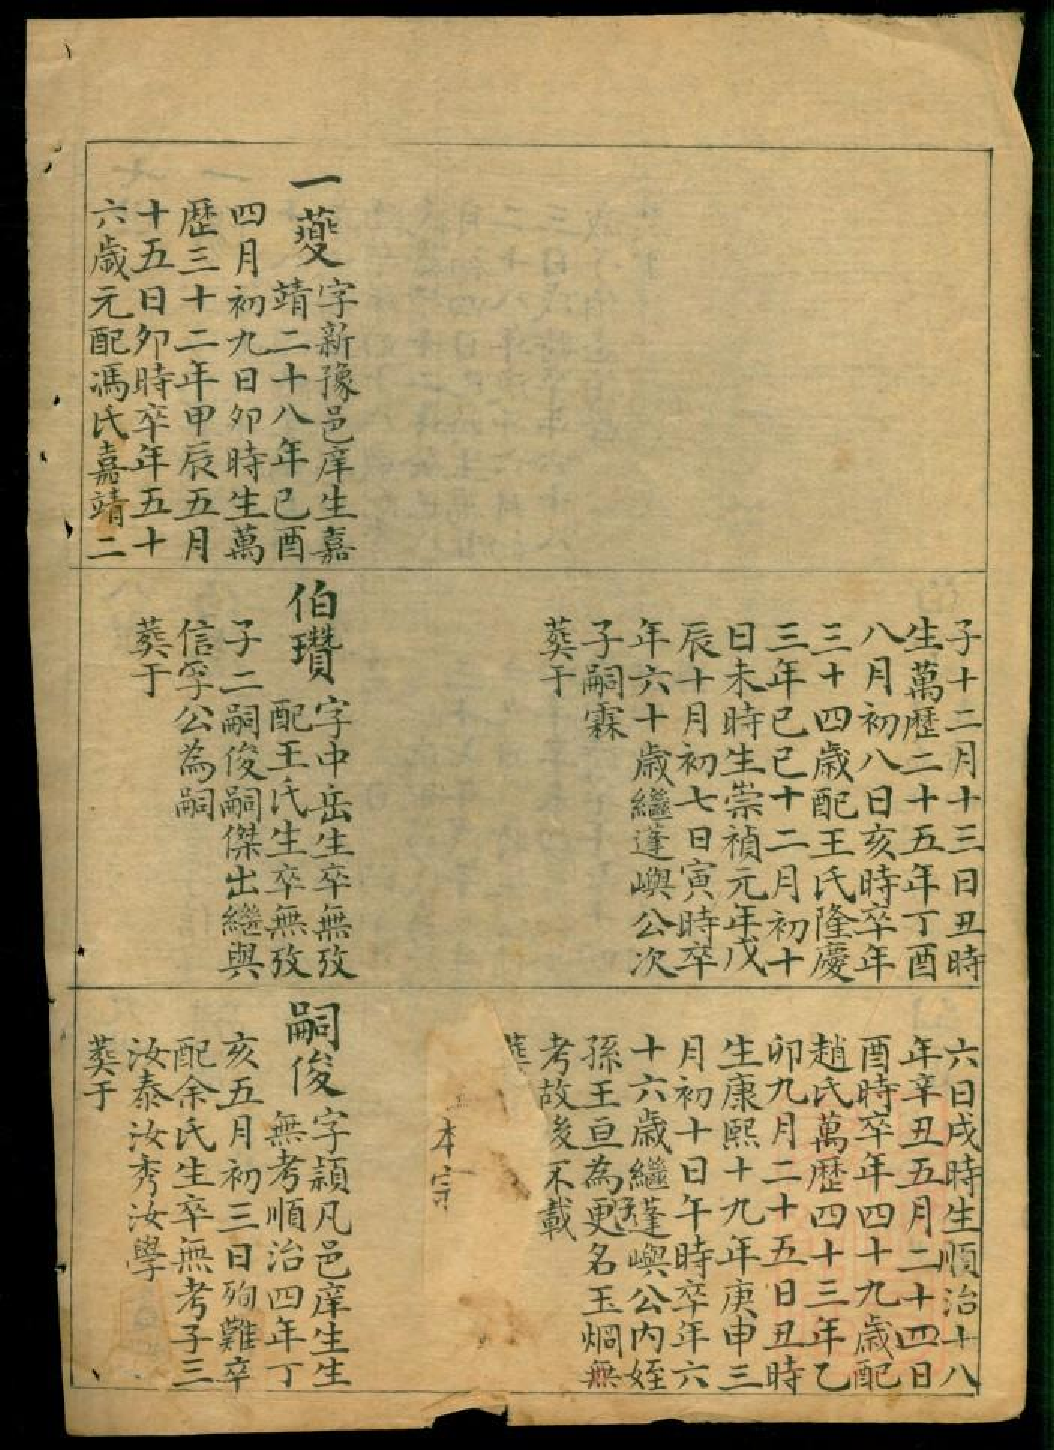 一蘷
字新豫邑庠生嘉
靖二十八年已酉
四月初九日夘時生萬
歷三十二年甲辰五月
十五日夘時卒年五十
六歲元配馮氏嘉靖二
子十二月十三日丑時
生萬歷二十五年丁酉
八月初八日亥時卒年
三十四歲配王氏隆慶
三年已巳十二月初十
日未時生崇禎元年戊
辰十月初七日寅時卒
年六十歲繼逢嶼公次
子嗣霖
葬于
伯瓚
字中岳生卒無攷
配王氏生卒無攷
子二嗣俊嗣傑出繼與
信孚公為嗣
葬于
六日戌時生順治十八
年辛丑五月二十四日
酉時卒年四十九歲配
趙氏萬歷四十三年乙
卯九月二十五日丑時
生康熙十九年庚申三
月初十日午時卒年六
十六歲繼蓬嶼公內姪
孫王亘為子更名玉烱無
考故後不載
葬
本宗
嗣俊
字潁凡邑庠生生
無考順治四年丁
亥五月初三日殉難卒
配余氏生卒無考子三
汝泰汝秀汝學
葬于